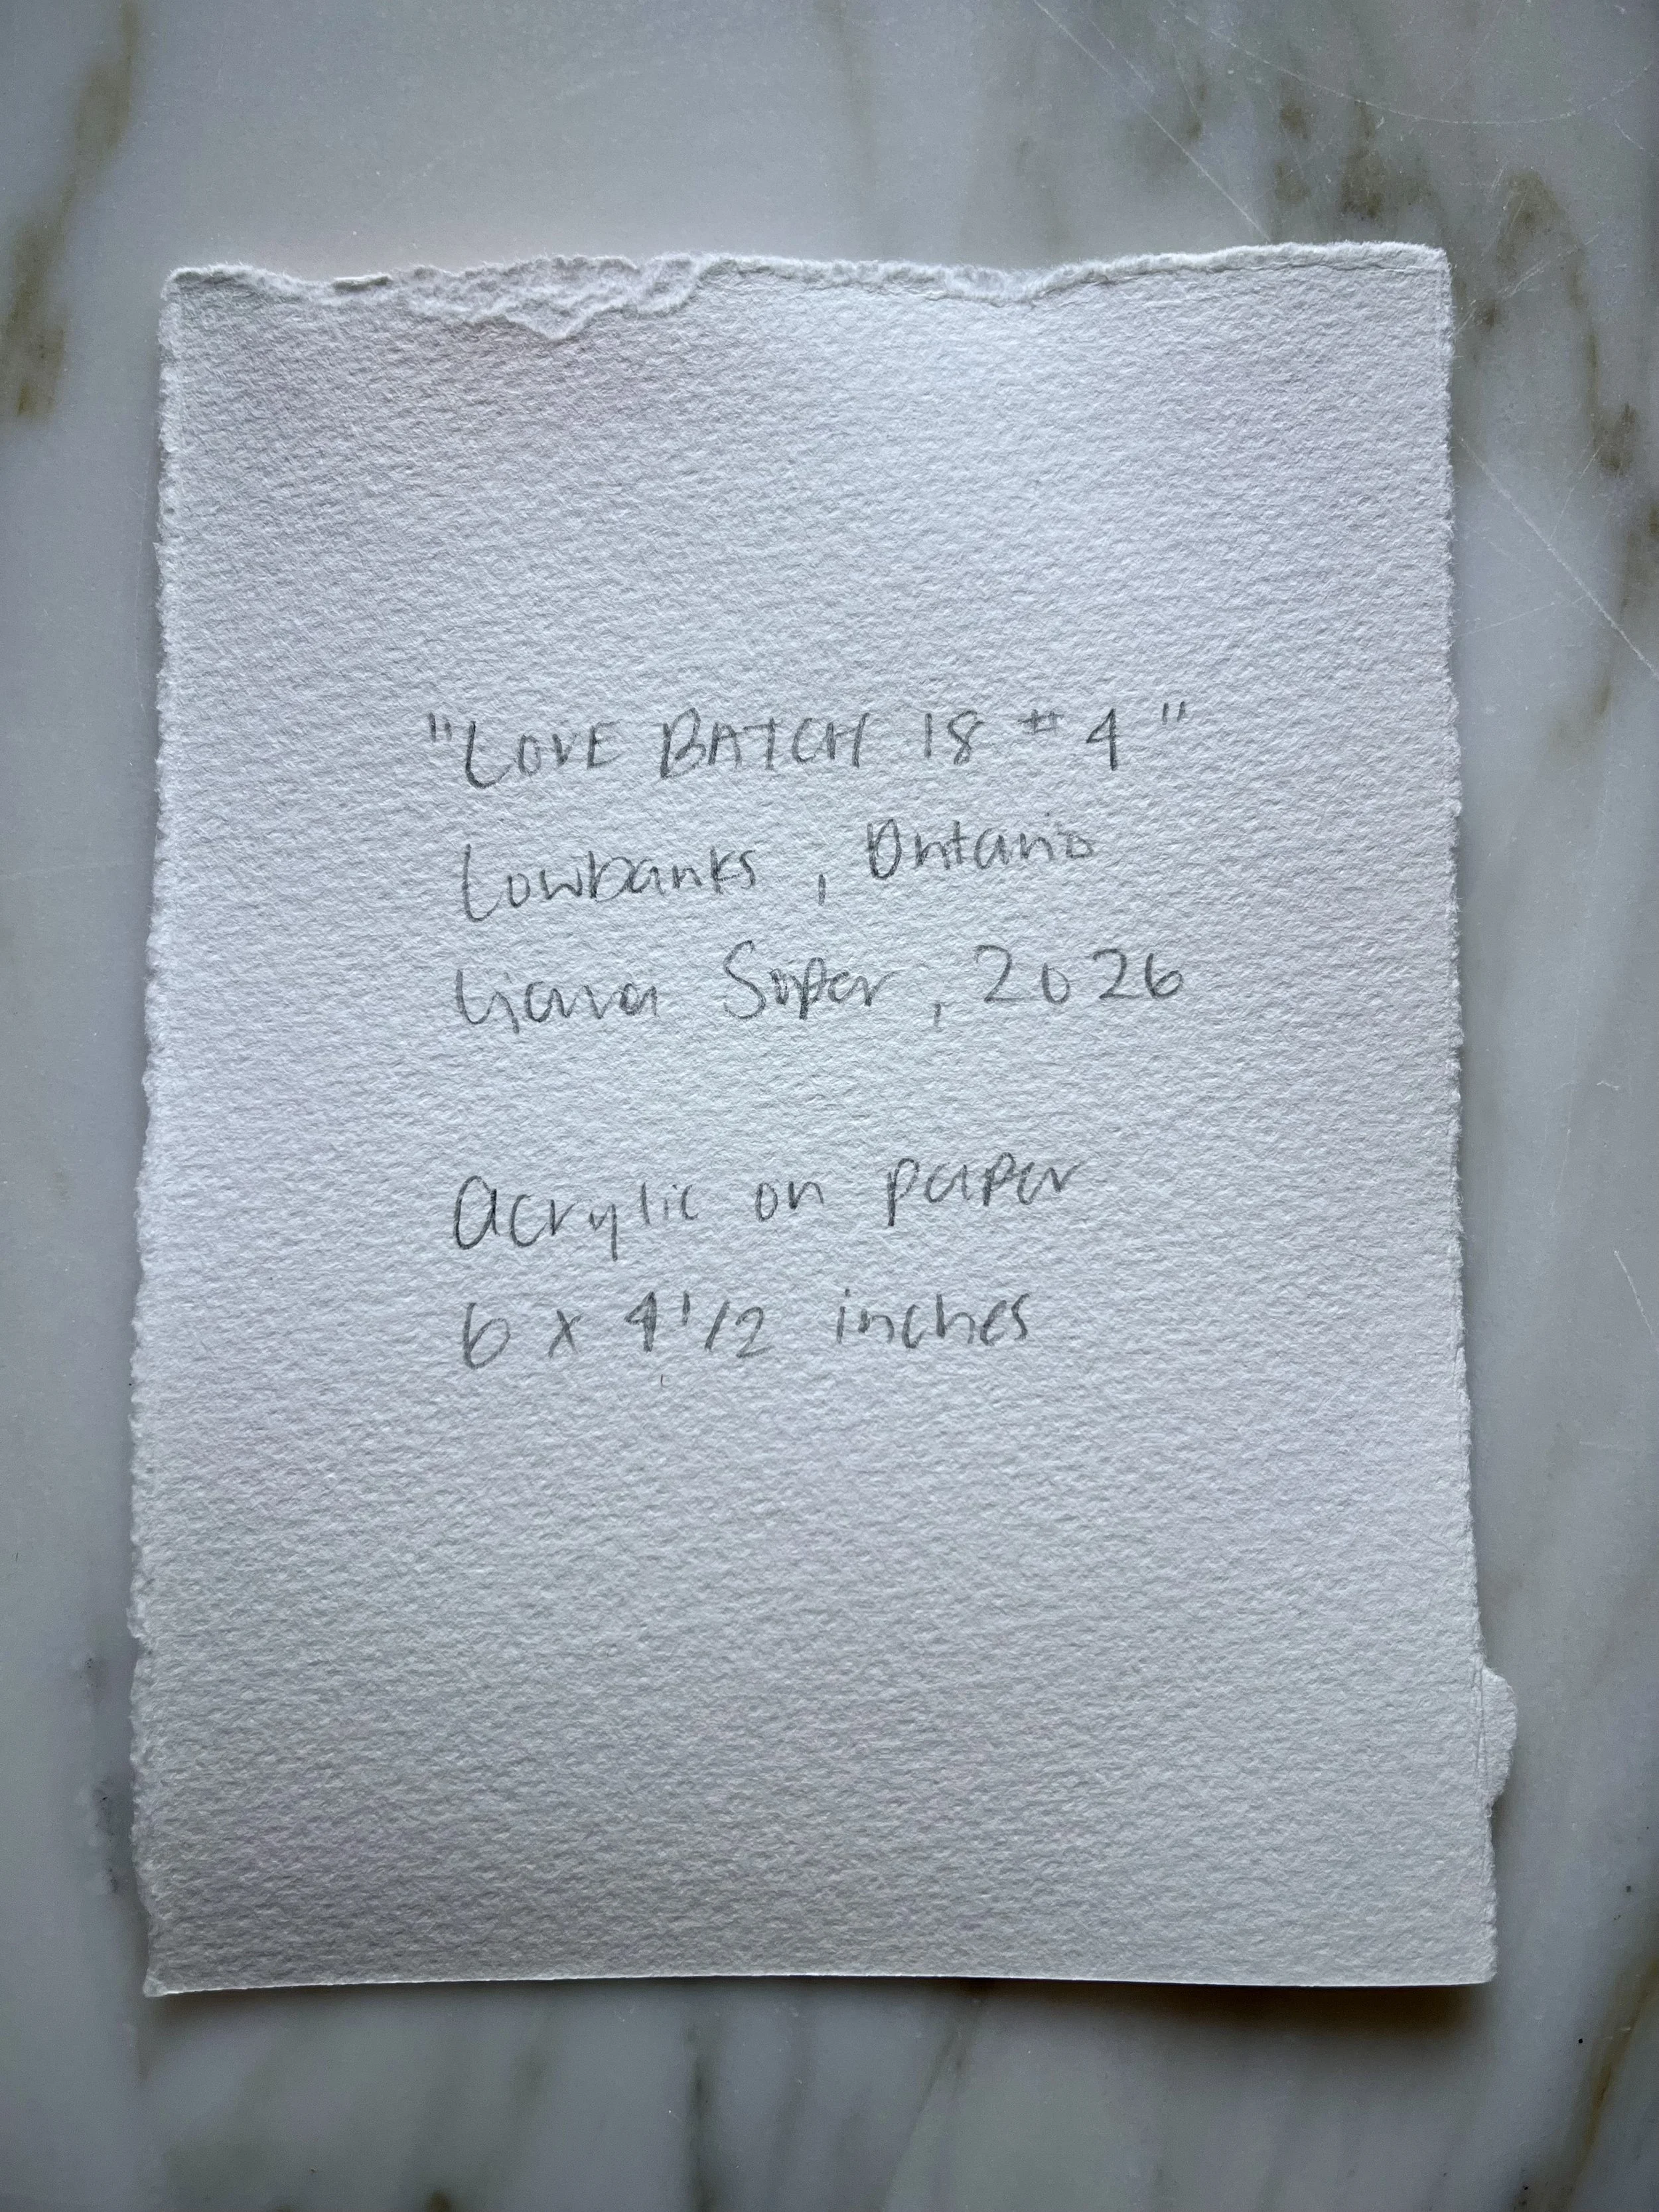 "LOVE BATCH 18 #4"
Lowbanks, Ontario
Liana Soper, 2026
Acrylic on paper
6 x 4 1/2 inches